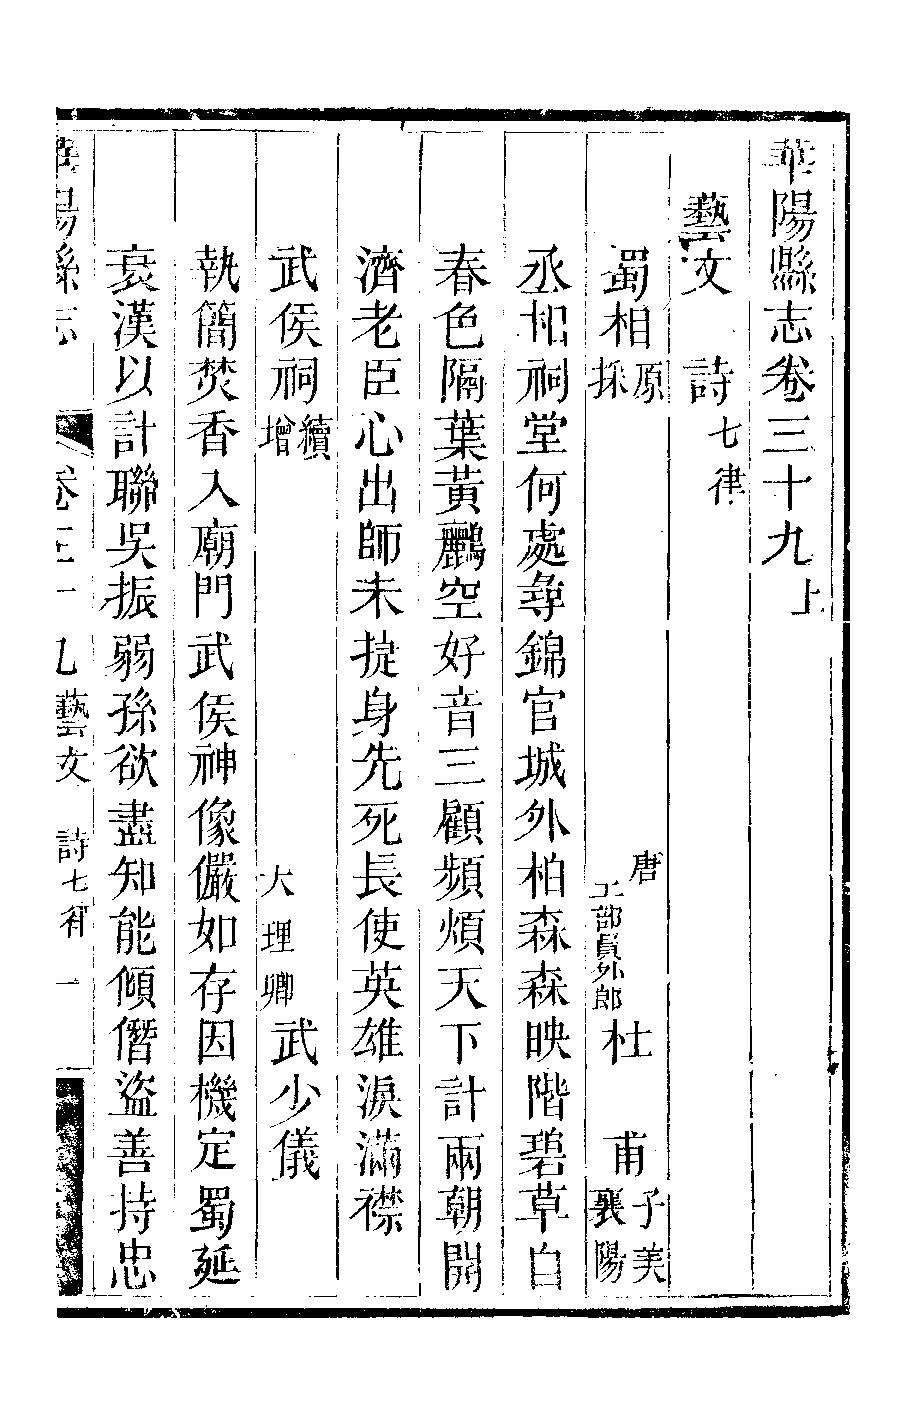 華陽縣志卷三十九上
藝文 詩七律
蜀相原採 唐工部員外郎杜 甫子美襄陽
丞相祠堂何處尋錦官城外柏森森映階碧草自
春色隔葉黃鸝空好音三顧頻煩天下計兩朝開
濟老臣心出師未捷身先死長使英雄淚滿襟
武侯祠續增 大理卿武少儀
執簡焚香入廟門武侯神像儼如存因機定蜀延
衰漢以計聯吳振弱孫欲盡知能傾僭盜善持忠
華陽縣志 卷三十九藝文 詩七律 一